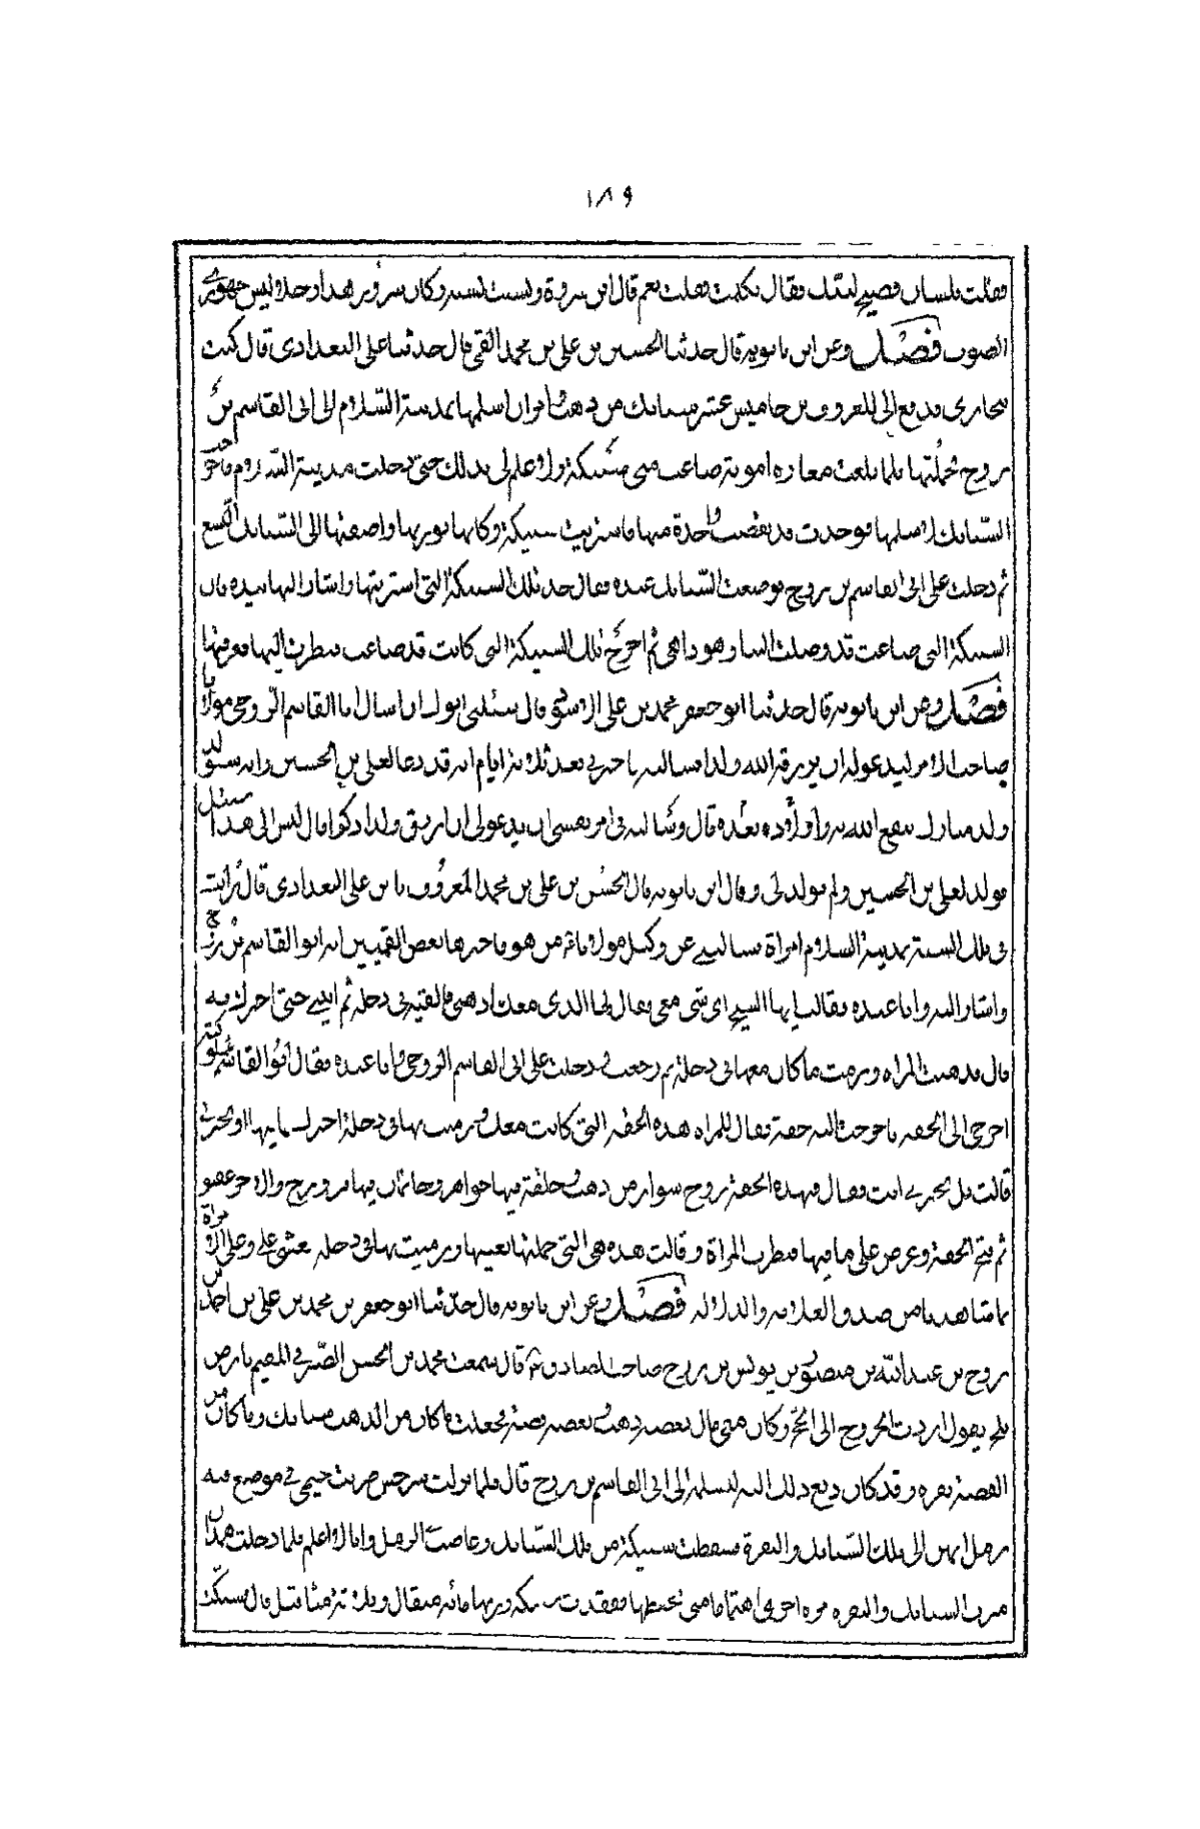 ١٨٩
فقلت بلسان فصيح لبيك فقال تكلمت فقلت نعم قال ابن سورة ولست نسبه وكان سرور هذا رجلا ليس جهوري
الصوت فصل وعن ابن بابويه قال حدثنا الحسين بن علي بن محمد القمي قال حدثنا علي البغدادي قال كنت
ببخارى فدفع الى المعروف بن جاميس عشر سبائك من ذهب وامر ان اسلمها بمدينة السلام الى ابى القاسم بن
روح فحملتها فلما بلغت امويه ضاعت منى سبيكة ولا اعلم لى بذلك حتى دخلت مدينة السلام فاخرجت
السبائك لاسلمها فوجدت قد نقصت واحدة منها فاشتريت سبيكة وكانها بوزنها واضفتها الى السبائك التسع
ثم دخلت على ابى القاسم بن روح فوضعت السبائك عنده فقال خذ تلك السبيكة التى اشتريتها واشار اليها بيده فان
السبيكة التى ضاعت قد وصلت الينا وهو ذا هى ثم اخرج تلك السبيكة التى كانت قد ضاعت فنظرت اليها فعرفتها
فصل وعن ابن بابويه قال حدثنا ابو جعفر محمد بن على الاسود قال سئلنى ابوك ان اسال ابا القاسم الروحى مولانا
صاحب الامر ليدعو له ان يرزقه الله ولدا فسالته فاخبرنى بعد ثلاثة ايام انه قد دعا لعلى بن الحسين وانه سيولد
ولد مبارك ينفع الله به واولاده بعده قال وسالته فى امر نفسى ان يدعو لى ان ارزق ولدا ذكرا قال ليس الى هذا سبيل
فولد لعلى بن الحسين ولم يولد لى وقال ابن بابويه قال الحسين بن على بن محمد المعروف بابن على البغدادى قال رايت
فى تلك السنة بمدينة السلام امراة فسالتنى عن وكيل مولانا من هو فاخبرها بعض القميين انه ابو القاسم بن روح
واشار اليه وانا عنده فقالت ايها الشيخ اى شى معى فقال لها الذى معك اذهبى فالقيه فى دجلة ثم ايتنى حتى اخبرك به
قال فذهبت المراه ورمت ما كان معها فى دجلة ثم رجعت ودخلت على ابى القاسم الروحى وانا عنده فقال ابو القاسم لمملوكته
اخرجى الى الحقه فاخرجت اليه حقة فقال للمراه هذه الحقه التى كانت معك ورميت بها فى دجلة اخبرك بما فيها او تخبرنى
قالت بل تخبرنى انت فقال فى هذه الحقة زوج سوار من ذهب وحلقة فيها جواهر وخاتمان فيها فيروزج والاخر عقيق
ثم فتح الحقة وعرض على ما فيها فنظرت المراة وقالت هذه هى التى حملتها بعينها ورميت بها فى دجلة فغشى على وعلى المراة
بما شاهدنا من صدق العلامه والدلالة فصل وعن ابن بابويه قال حدثنا ابو جعفر بن محمد بن على بن احمد بن
روح بن عبد الله بن منصور بن يونس بن روح صاحب الصادق ع قال سمعت محمد بن الحسن الصيرفى المقيم بارض
بلخ يقول اردت الخروج الى الحج وكان معى مال بعضه ذهب وبعضه فضة فجعلت ما كان من الذهب سبائك وما كان من
الفضة نقره وقد كان دفع ذلك اليه لتسلمه الى ابى القاسم بن روح قال فلما نزلت سرخس ضربت خيمى فى موضع فيه
رمل امير الى تلك السبائك والنقرة فسقطت سبيكة من تلك السبائك وغاصت الرمل وانا لا اعلم فلما دخلت همدان
ميزت السبائك والنقره مره اخرى اهتماما منى بحفظها ففقدت سبيكه وزنها مائه مثقال وثلاثة مثاقيل قال فسبكت